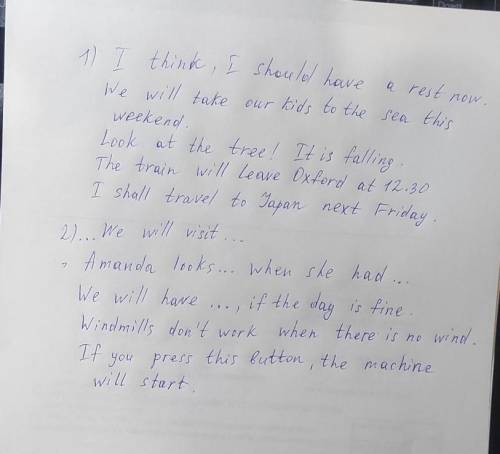 1) I think, I should have a rest now.
We will take our kids to the sea this
weekend.
Look at the tree! It is falling.
The train will leave Oxford at 12.30
I shall travel to Japan next Friday.
2)... We will visit...
Amanda looks... when she had...
We will have ..., if the day is fine.
Windmills don't work when there is no wind.
If you press this button, the machine
will start.